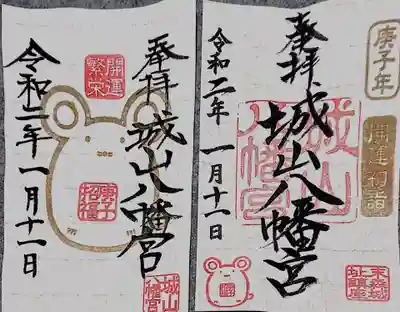 奉拝
開運
繁栄
城山八幡宮
庚子
招福
令和二年一月十一日
城山
八幡宮
庚子年
開運初詣
奉拝
城山
八幡宮
城山八幡宮
令和二年一月十一日
末森城
址鎮座